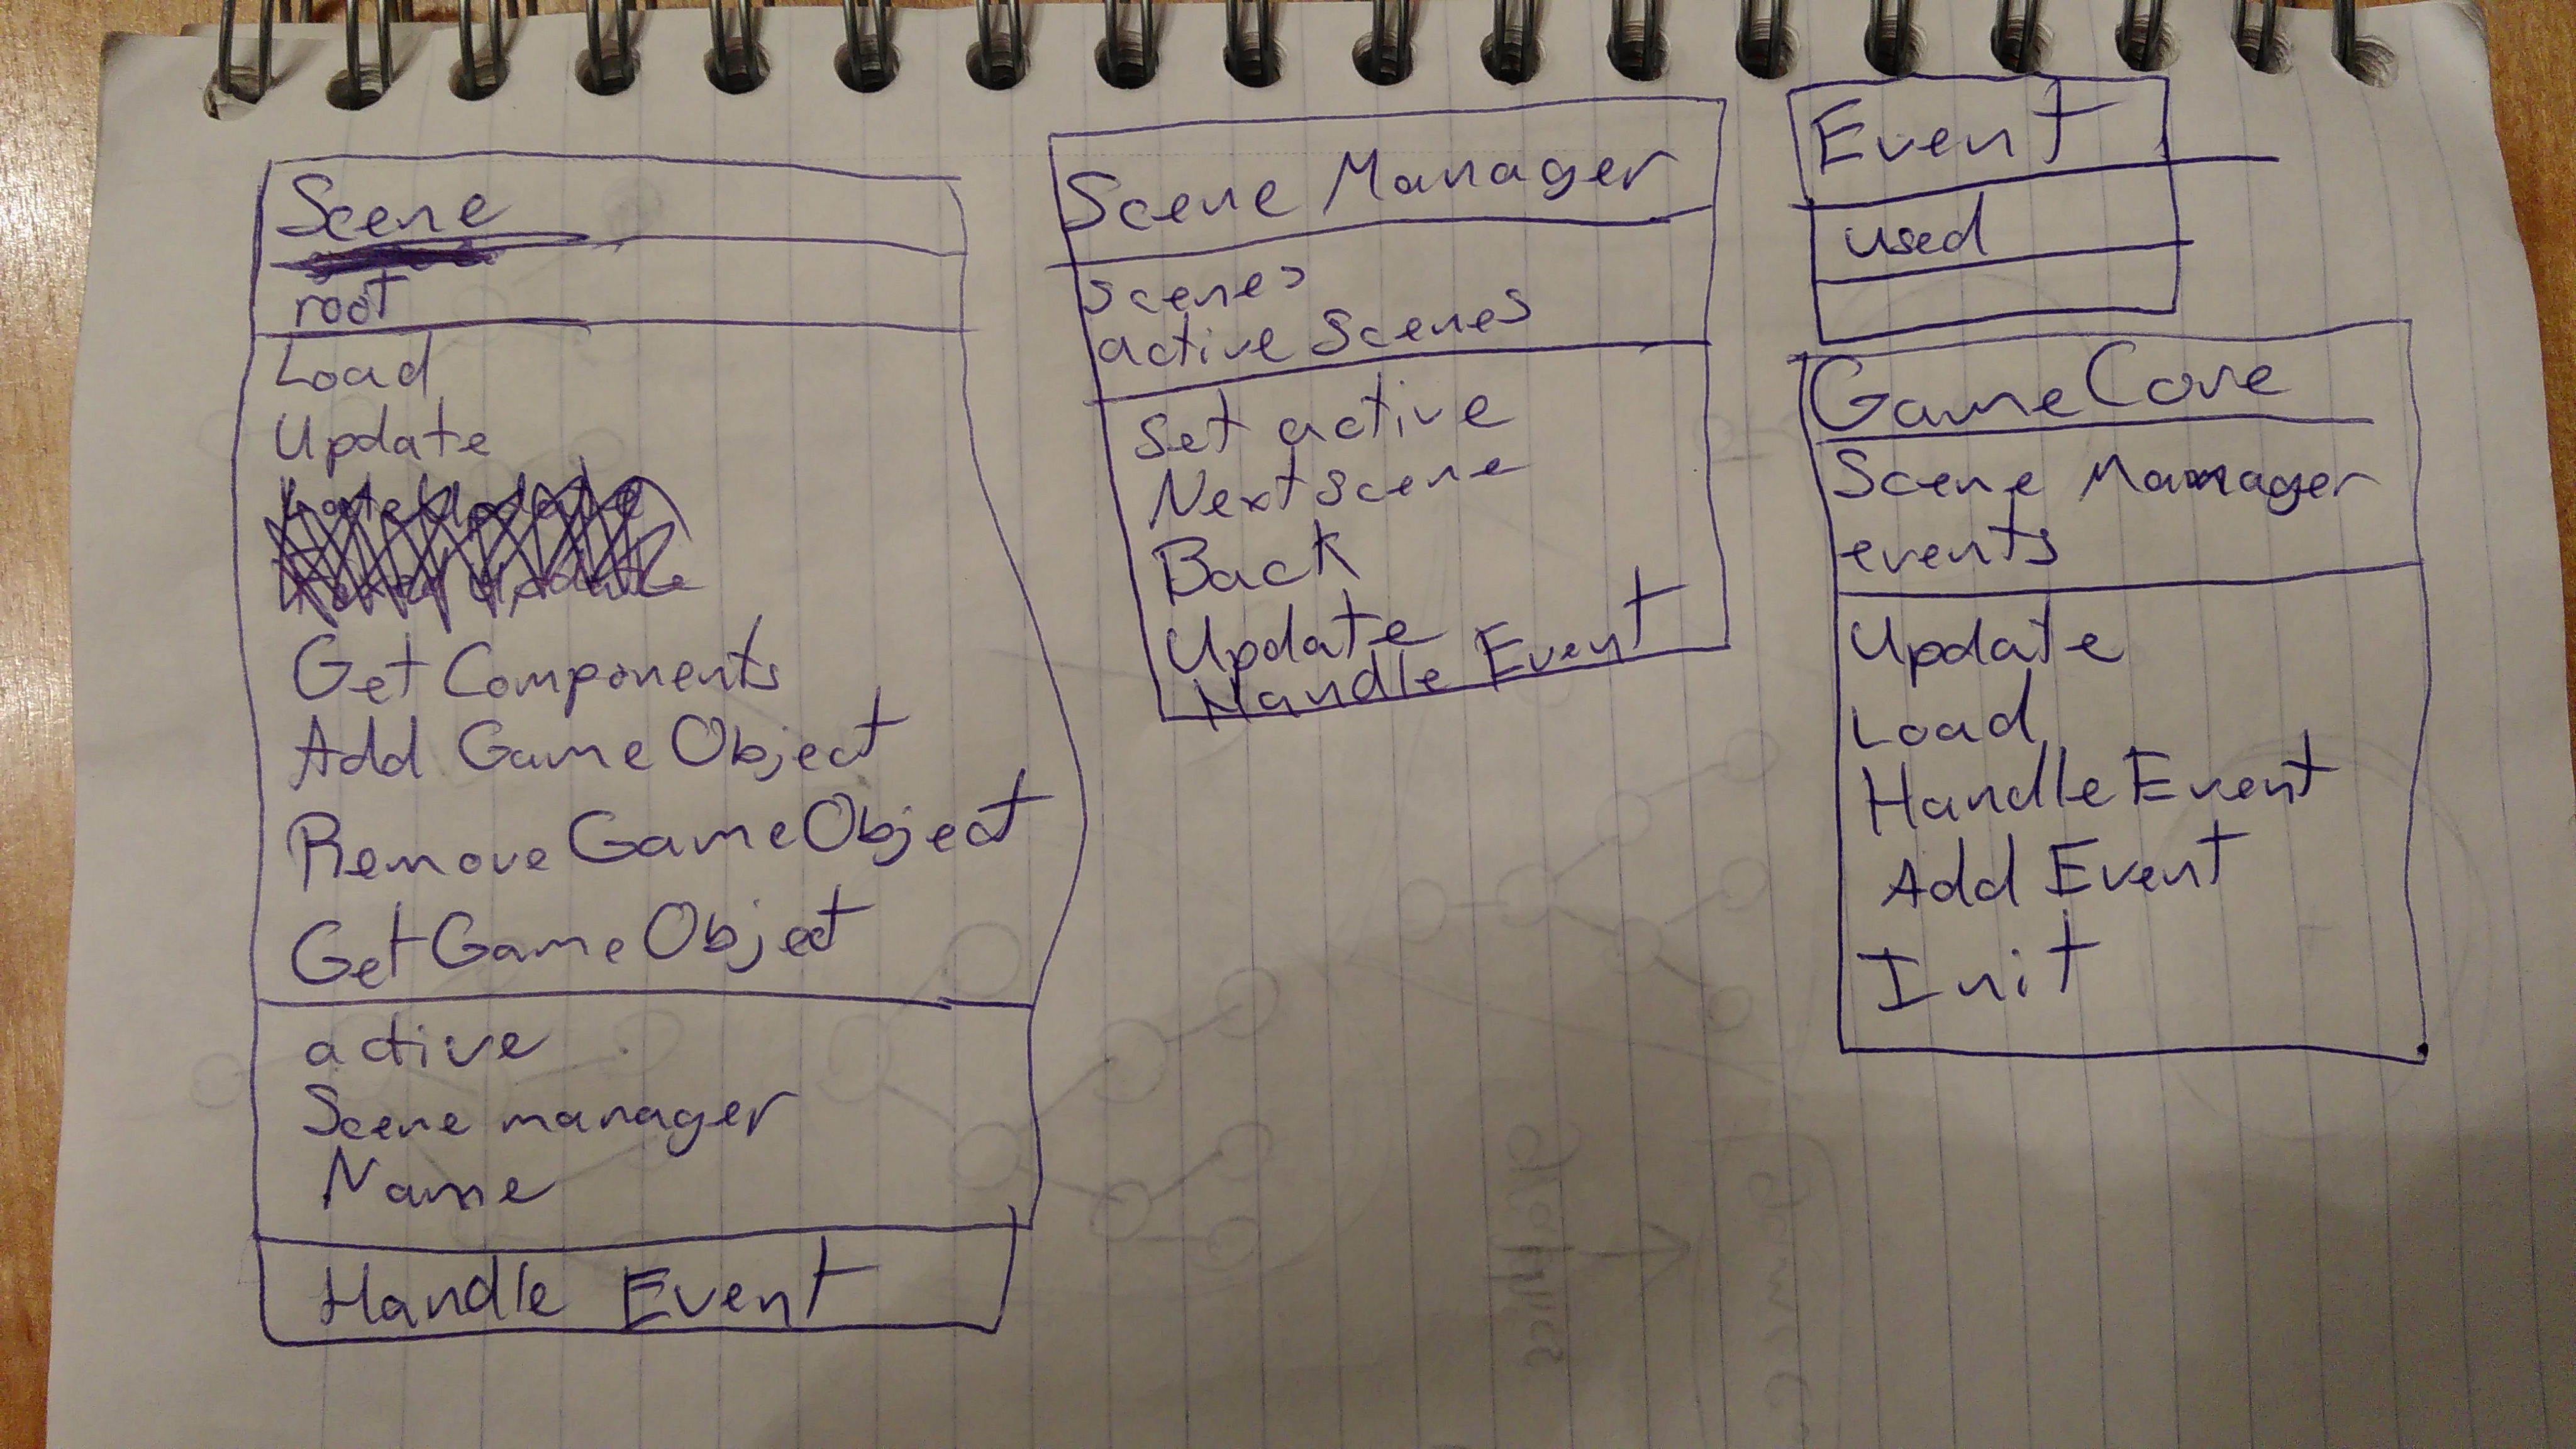 Scene
root
Load
Update
Get Components
Add GameObject
Remove GameObject
GetGameObject
active
Scene manager
Name
Handle Event
Scene Manager
scenes
active Scenes
Set active
Next scene
Back
Update
Handle Event
Event
used
GameCore
Scene Manager
events
Update
Load
HandleEvent
Add Event
Init